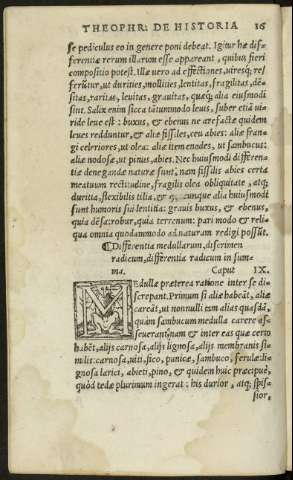 THEOPHR: DE HISTORIA 16
se pediculus eo in genere poni debeat. Igitur hæ diffe
ferentiæ rerum illarum esse appareant, quibus fieri
compositio potest. Illæ uero ad effectiones, uiresq́; re
ferũtur, ut durities, mollities, lentitas, fragilitas, dẽ-
sitas, raritas, leuitas, grauitas, quæq́; alia eiusmodi
sint. Salix enim sicca tãtummodo leuis, suber etiã ui-
ride leue est: buxus, & ebenus ne arefactæ quidem
leues redduntur, & aliæ fissiles, ceu abies: aliæ fran-
gi celeriores, ut olea: aliæ item enodes, ut sambucus:
aliæ nodosæ, ut pinus, abies. Nec huiusmodi differen-
tiæ denegandæ naturæ sunt, nam fissilis abies certa
meatuum rectitudine, fragilis olea obliquitate, atq́;
duritia, flexibilis tilia, & cunque alia huiusmodi
sunt humoris sui lentitia: grauis buxus, & ebenus,
quia dẽsa: robur, quia terrenum: pari modo & reli-
qua omnia quodammodo ad naturam redigi possũt.
Differentia medullarum, discrimen
radicum, differentia radicum in sum-
ma. Caput IX.
MEdullæ præterea ratione inter se di-
screpant. Primum si aliæ habeãt, aliæ
careãt, ut nonnulli cum alias quasdã,
quàm sambucum medulla carere as-
seuerant: nam & inter eas quæ certo
habẽt, alijs carnosa, alijs lignosa, alijs membranis si-
milis: carnosa, uiti, fico, punicæ, sambuco, ferulæ: li-
gnosa larici, abieti, pino, & quidem huic præcipuè,
quòd tedæ plurimum ingerat: his durior, atq́; spis-
sior,